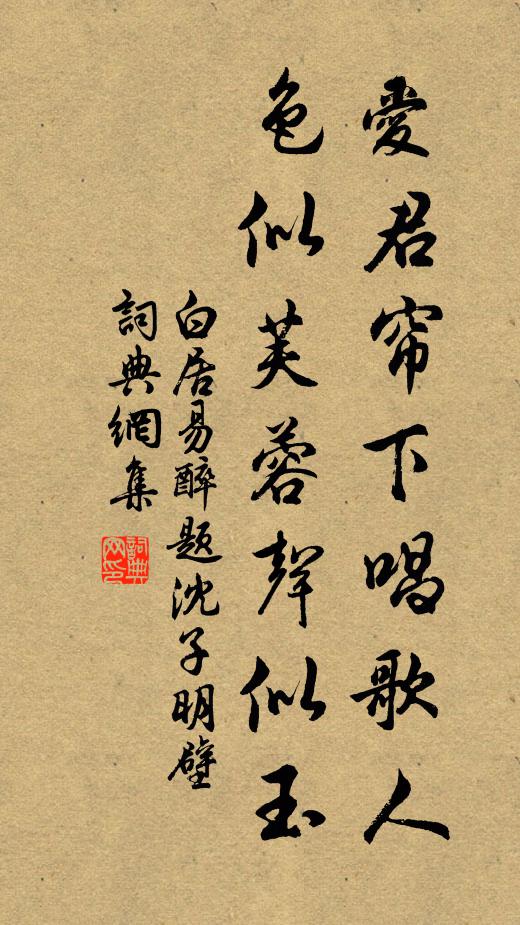 愛君帘下唱歌人
色似芙蓉聲似玉
白居易醉题沈子明壁
詞典網集
詞典
网印